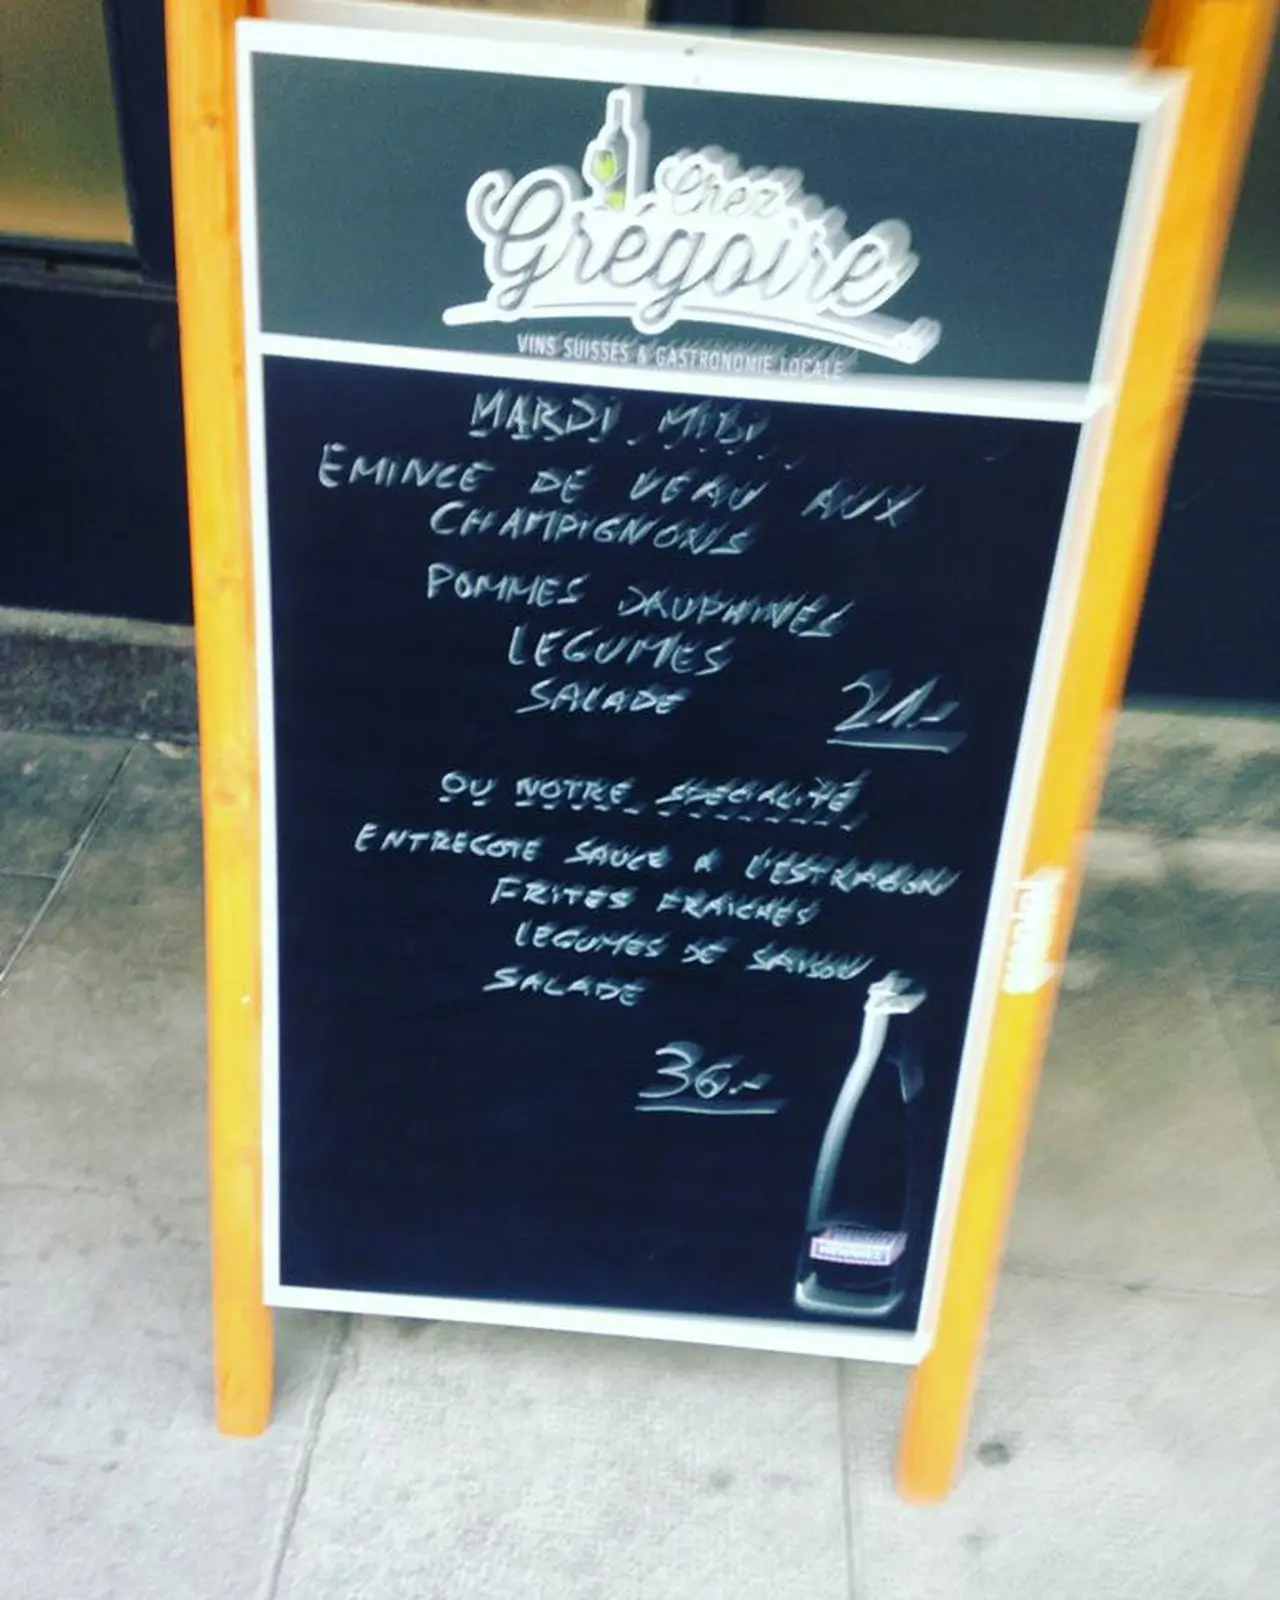 Chez
Grégoire
VINS SUISSES & GASTRONOMIE LOCALE
MARDI MIDI
EMINCE DE VEAU AUX
CHAMPIGNONS
POMMES DAUPHINES
LEGUMES
SALADE
21.-
OU NOTRE SPECIALITÉ
ENTRECOTE SAUCE A L'ESTRAGON
FRITES FRAICHES
LEGUMES DE SAISON
SALADE
36.-